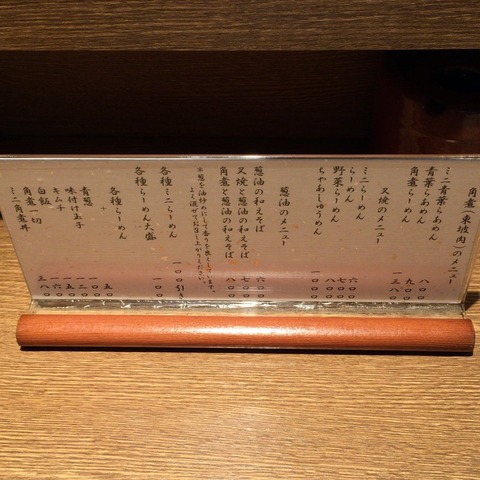 角煮(東坡肉)のメニュー
ミニ青葉らあめん 八〇〇
青葉らあめん 九〇〇
角煮らーめん 一三八〇
叉焼のメニュー
ミニらーめん 六〇〇
らーめん 七〇〇
野菜らーめん 八〇〇
ちやあしゅうめん 一〇〇〇
葱油のメニュー
葱油の和えそば 六〇〇
叉焼と葱油の和えそば 七〇〇
角煮と葱油の和えそば 八〇〇
※葱を油炒めにして香りを良くしています。
よく混ぜてお召し上がりください。
各種ミニらーめん 一〇〇引き
各種らーめん大盛 一〇〇
各種らーめん
青葱 五〇
味付け玉子 一〇〇
キムチ 一二〇
白飯 一五〇
角煮一切 一六〇
ミニ角煮丼 三八〇